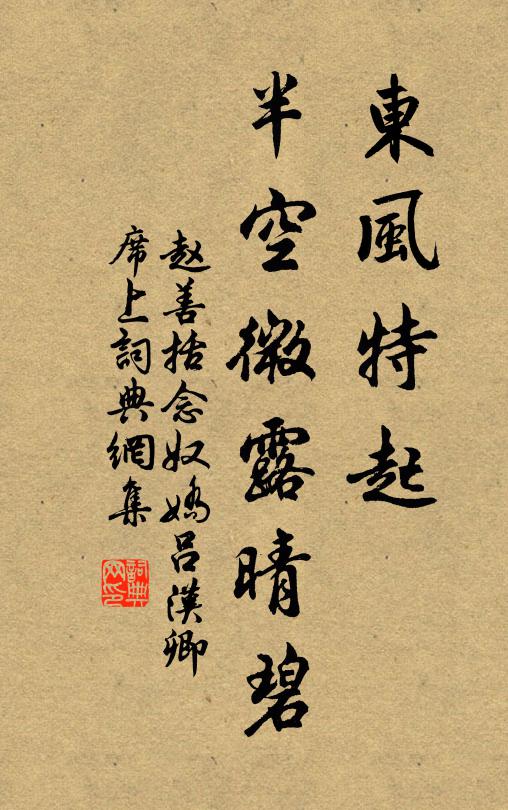 東風特起
半空微露晴碧
赵善括念奴嬌吕漢卿
席上詞典網集
詞典網印